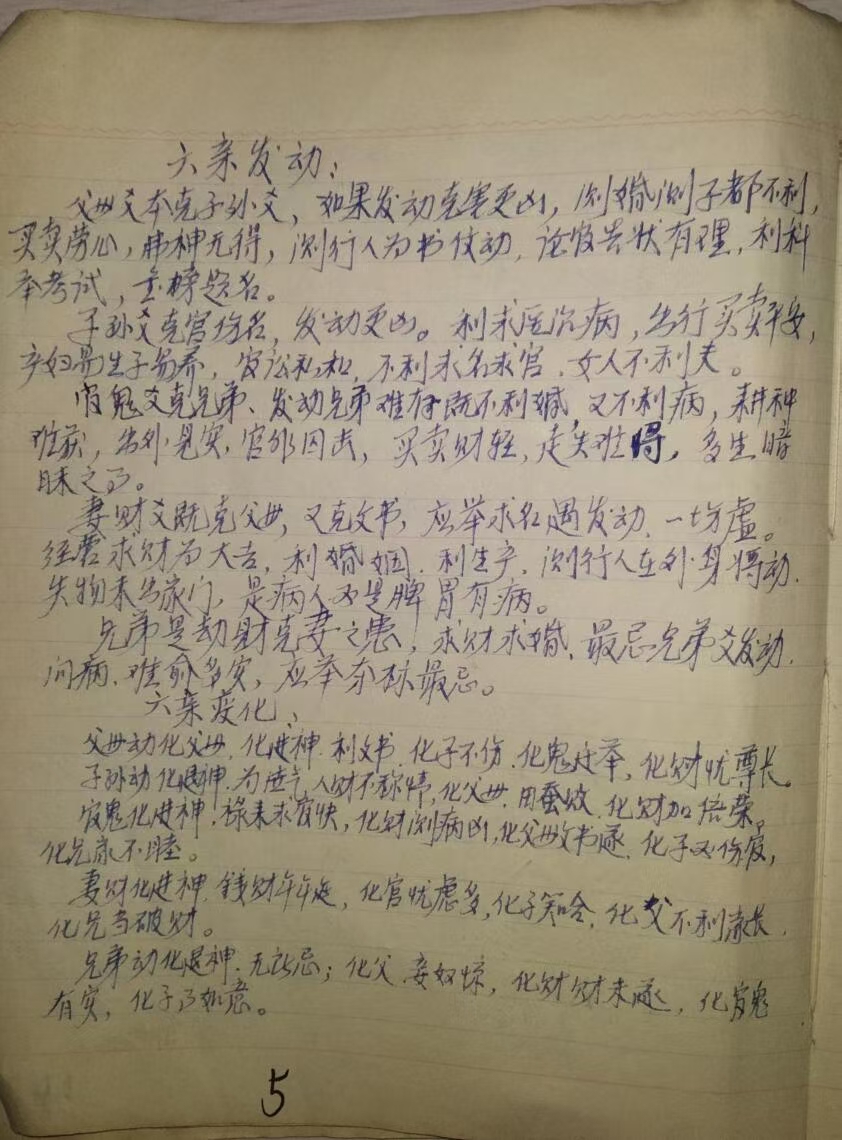 六亲发动：
父母爻本克子孙爻，如果发动克害更凶，测婚测子都不利，
买卖劳心，费神无得，测行人为书信动，论官告状有理，利科
举考试，金榜题名。
子孙爻克官伤名，发动更凶。利求医治病，出行买卖平安，
产妇易生子易养，官讼私和，不利求名求官，女人不利夫。
官鬼爻克兄弟、发动兄弟难有既不利婚，又不利病，耕种
难获，出外见灾，官外囚击，买卖财轻，走失难得，多生暗
昧之事。
妻财爻既克父母，又克文书，应举求名遇发动，一切虚。
经营求财为大吉，利婚姻，利生产，测行人在外身将动，
失物未出家门，是病人必是脾胃有病。
兄弟是劫财克妻之患，求财求婚、最忌兄弟爻发动，
问病、难愈多灾，应举夺标最忌。
六亲变化：
父母动化父母、化进神、利文书、化子不伤、化鬼迁举，化财忧尊长。
子孙动化退神、为泄气人财不称情，化父母、田蚕败、化财加倍荣。
官鬼化进神、禄来求官快，化财测病凶，化父母文书遂、化子必伤官，
化兄家不睦。
妻财化进神、钱财年年进，化官忧虑多，化子笑哈哈，化父不利家长，
化兄当破财。
兄弟动化退神、无所忌；化父、妾奴惊，化财财未遂，化官鬼
有灾，化子事如意。
5